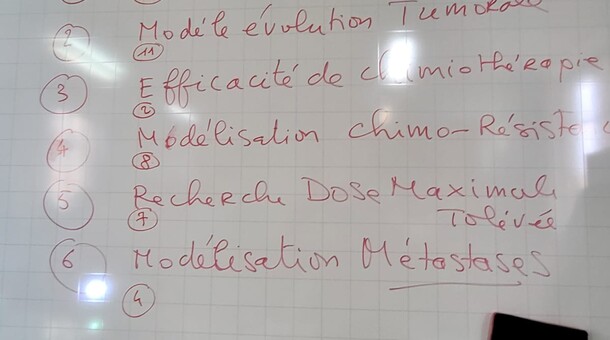 2 Modéle évolution Tumorale
11
3 Efficacité de chimiothérapie
2
4 Modélisation chimo-Résistenc
8
5 Recherche Dose Maximale
7 Tolévée
6 Modélisation Métastases
4